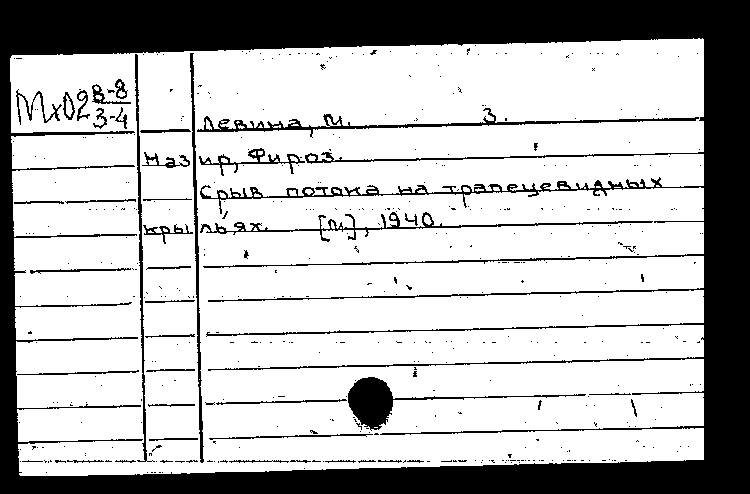 Мх02 В-8
3-4
Левина, М. З.
Назир, Фироз.
Срыв потока на трапецевидных
крыльях. [М.], 1940.